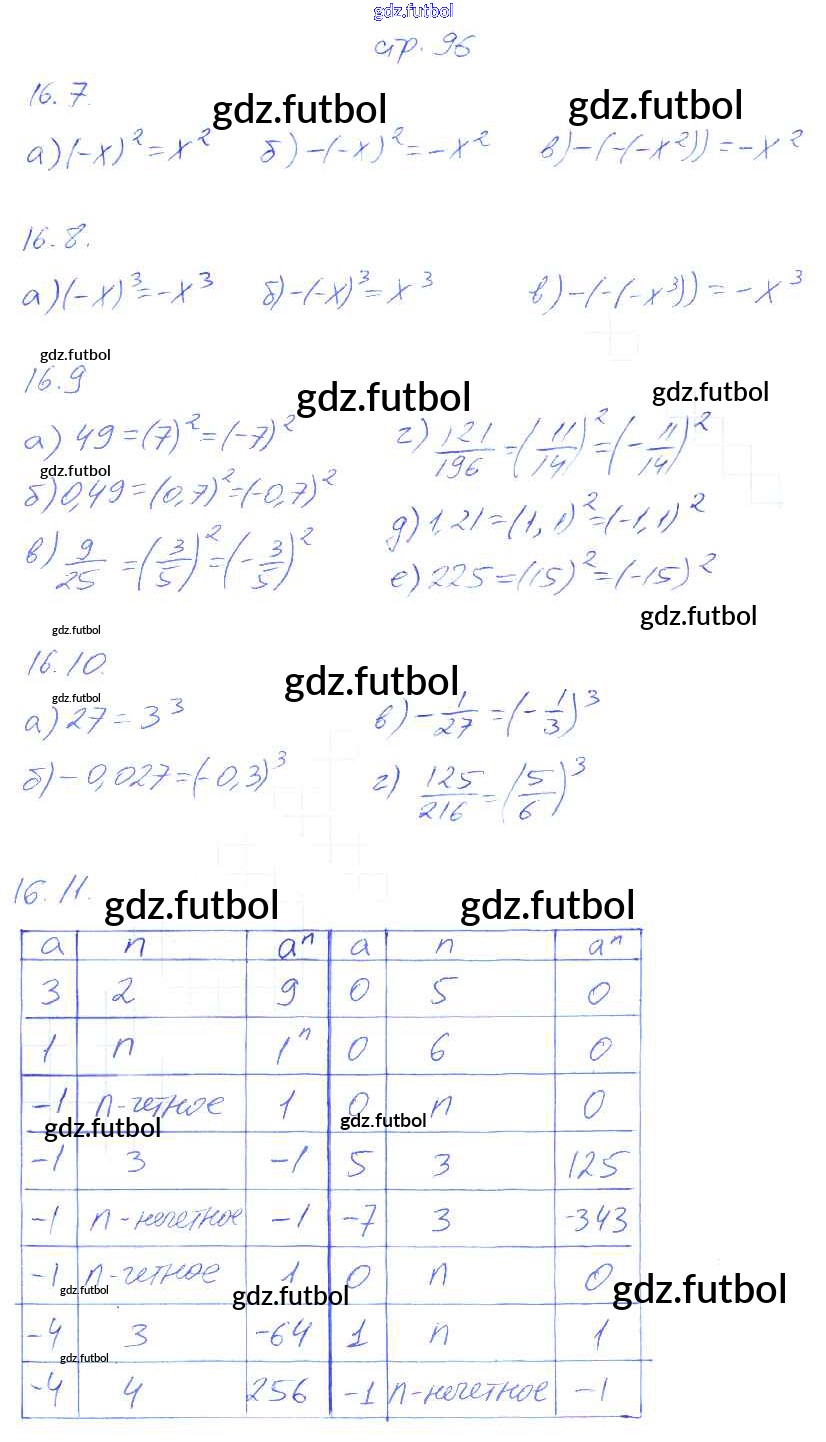 gdz.futbol
стр. 96
16.7.
gdz.futbol gdz.futbol
а) (-x)² = x² б) -(-x)² = -x² в) -(-(-x²)) = -x²
16.8.
а) (-x)³ = -x³ б) -(-x)³ = x³ в) -(-(-x³)) = -x³
gdz.futbol
16.9
gdz.futbol gdz.futbol
а) 49 = (7)² = (-7)² г) 121/196 = (11/14)² = (-11/14)²
gdz.futbol
б) 0,49 = (0,7)² = (-0,7)² д) 1,21 = (1,1)² = (-1,1)²
в) 9/25 = (3/5)² = (-3/5)² е) 225 = (15)² = (-15)²
gdz.futbol
gdz.futbol
16.10.
gdz.futbol
gdz.futbol
а) 27 = 3³ в) -1/27 = (-1/3)³
б) -0,027 = (-0,3)³ г) 125/216 = (5/6)³
16.11.
gdz.futbol gdz.futbol
a n aⁿ a n aⁿ
3 2 9 0 5 0
1 n 1ⁿ 0 6 0
-1 n-четное 1 0 n 0
gdz.futbol gdz.futbol
-1 3 -1 5 3 125
-1 n-нечетное -1 -7 3 -343
-1 n-четное 1 0 n 0
gdz.futbol gdz.futbol gdz.futbol
-4 3 -64 1 n 1
gdz.futbol
-4 4 256 -1 n-нечетное -1